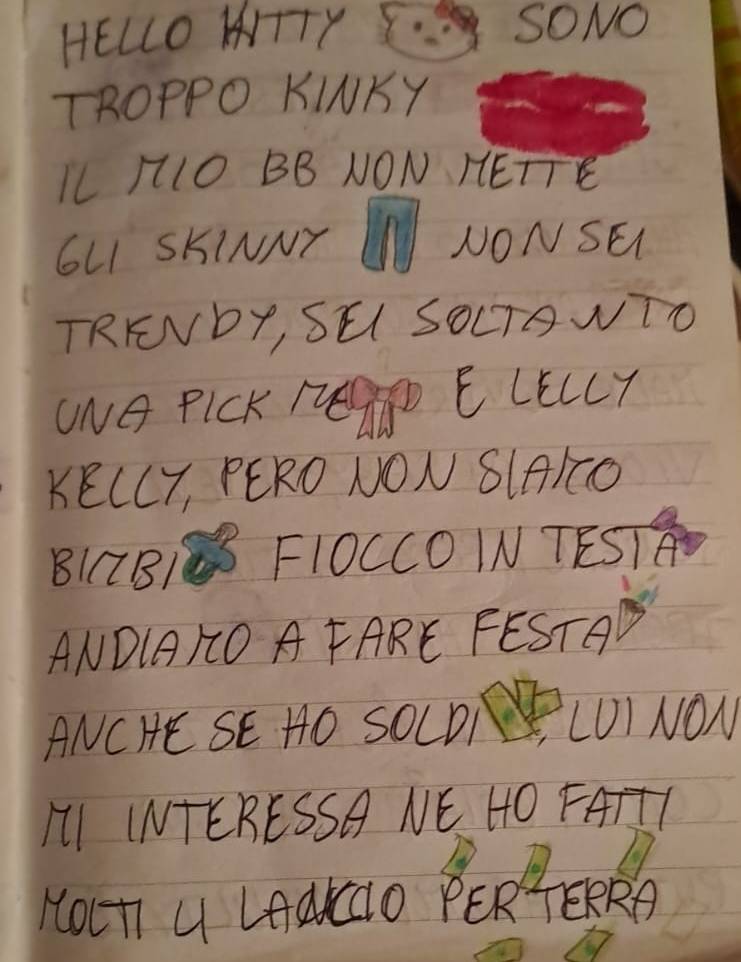 HELLO KITTY SONO
TROPPO KINKY
IL MIO BB NON METTE
GLI SKINNY NON SEI
TRENDY, SEI SOLTANTO
UNA PICK ME E LELLY
KELLY, PERO NON SIAMO
BIMBI FIOCCO IN TESTA
ANDIAMO A FARE FESTA
ANCHE SE HO SOLDI, LUI NON
MI INTERESSA NE HO FATTI
MOLTI LI LANCIO PER TERRA